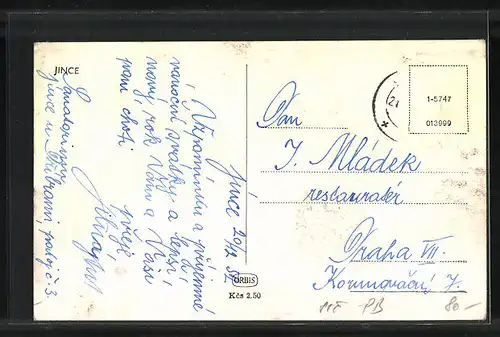 JINCE
Jince 20/12 52
Vzpomínku a příjemné
vánoční svátky a lepší
nový rok Vám a Vaší
paní choti
přeje
Jince u Příbrami, pokoj č. 3.
ORBIS
Kčs 2.50
1-5747
013999
Pan
J. Mládek
restauratér
Praha VII.
Korunovační 7.
PB
80-